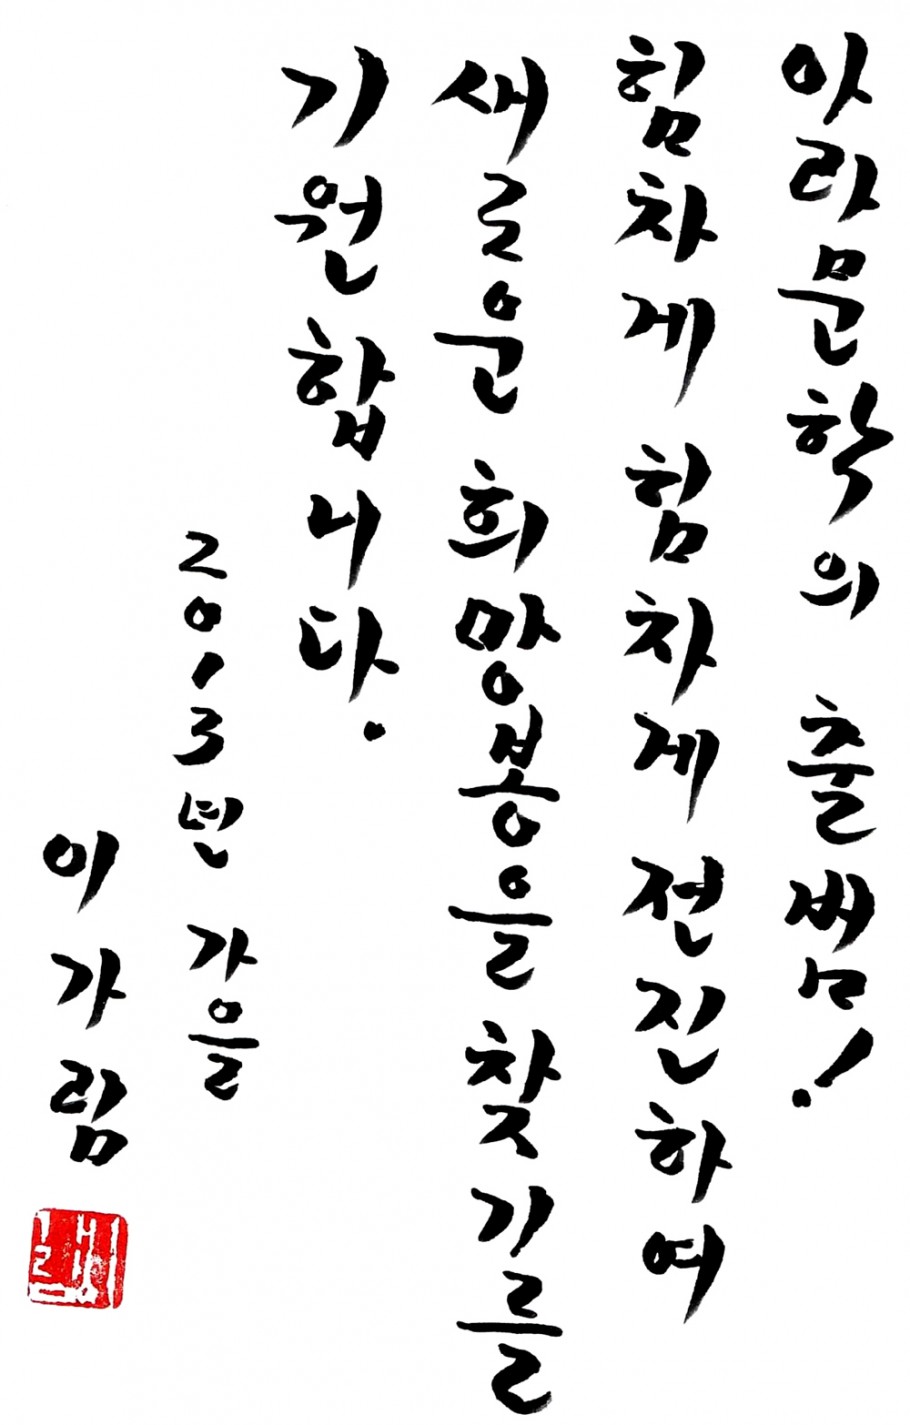 아라문학의 출범!
힘차게 힘차게 전진하여
새로운 희망봉을 찾기를
기원합니다.
2013년 가을
이가림